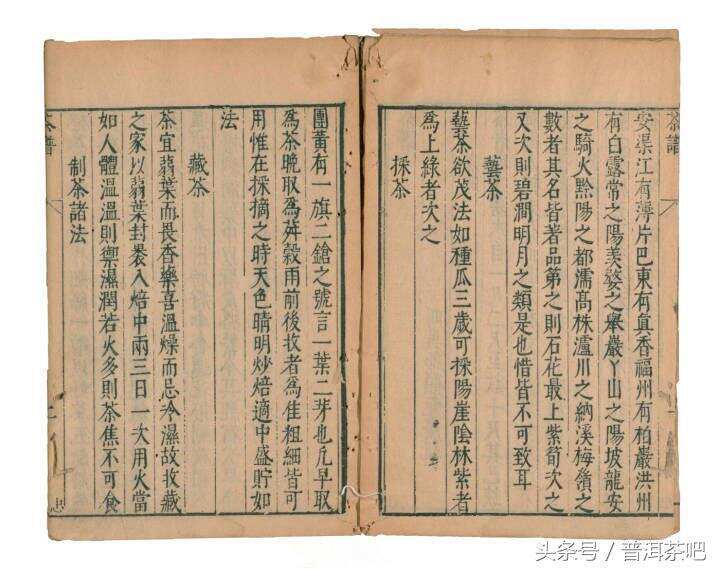 茶譜
安渠江有薄片巴東有眞香福州有柏巖洪州
有白露常之陽羨婺之舉巖丫山之陽坡龍安
之騎火黔陽之都濡高株瀘川之納溪梅嶺之
數者其名皆著品第之則石花最上紫筍次之
又次則碧澗明月之類是也惜皆不可致耳
藝茶
藝茶欲茂法如種瓜三歲可採陽崖陰林紫者
爲上綠者次之
採茶
團黃有一旗二鎗之號言一葉二芽也凡早取
爲茶晚取爲荈穀雨前後收者爲佳粗細皆可
用惟在採摘之時天色晴明炒焙適中盛貯如
法
藏茶
茶宜蒻葉而畏香藥喜溫燥而忌冷濕故收藏
之家以蒻葉封裹入焙中兩三日一次用火當
如人體溫溫則禦濕潤若火多則茶焦不可食
制茶諸法
茶譜
头条号／普洱茶吧